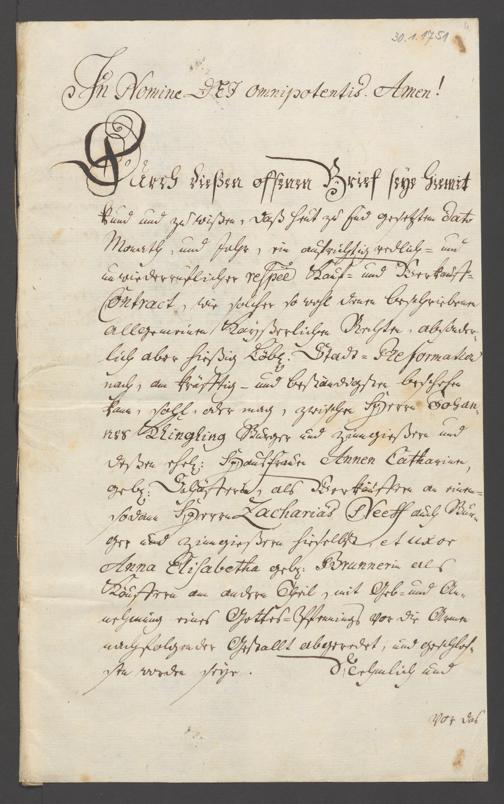 30.1.1751
In Nomine DEJ omnipotentis. Amen!
Durch dießen offenen Brief seye hiemit
kund und zu wißen, daß heut zu End gesetztem dato
Monath, und Jahr, ein aufrichtig redlich- und
unwiederruflicher respée Kauf- und Verkaufs-
Contract, wie solcher so wohl denen beschriebenen
allgemeinen Kayserlichen Rechten, absonder-
lich aber hießig Löbl: Stadt-Reformation
nach, am kräfftig- und beständigsten beschehen
kan, soll, oder mag, zwischen Herrn Johan-
nes Klingling Burger und Zinngießer und
deßen ehel: Haußfrauen Annen Catharinen,
gebl: als Verkäuffern an einem-
sodann Herrn Zacharias Neeff auch Bur-
ger und Zinngießern hieselbst, et uxor
Anna Elisabetha gebl: Brunnerin als
Käuffern am andern Theil, mit Geb- und An-
nehmung eines Gottes-Pfennings vor die Armen
nachfolgender Gestallt abgeredet, und geschloß-
sen worden seye. Nehmlich und
vor das